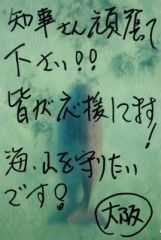 知事さん頑張って
下さい!!
皆が応援してます!
海、山を守りたい
です!
大阪